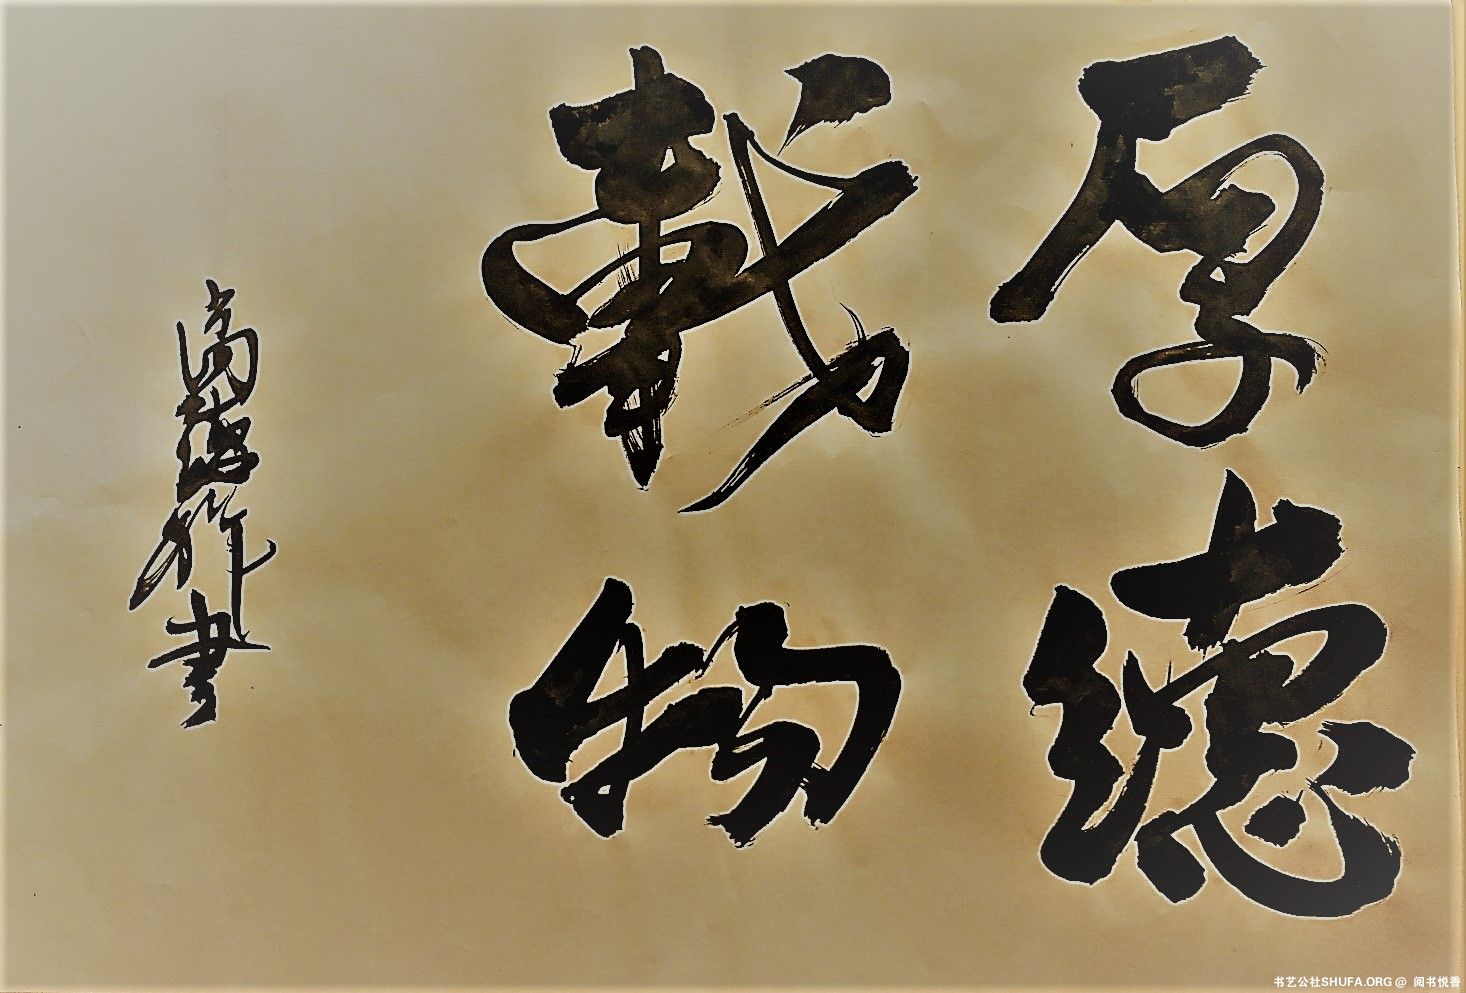 厚德
載物
书艺公社SHUFA.ORG @ 阅书悦香